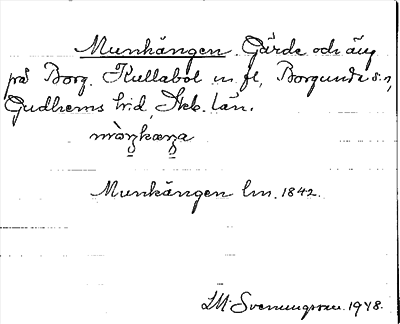 Munkängen. Gärde och äng
på Borg. Kullabol m. fl., Borgunda s:n,
Gudhems hrd, Skb. län.
Munkängen lm. 1842.
LM. Svenungsson. 1948.